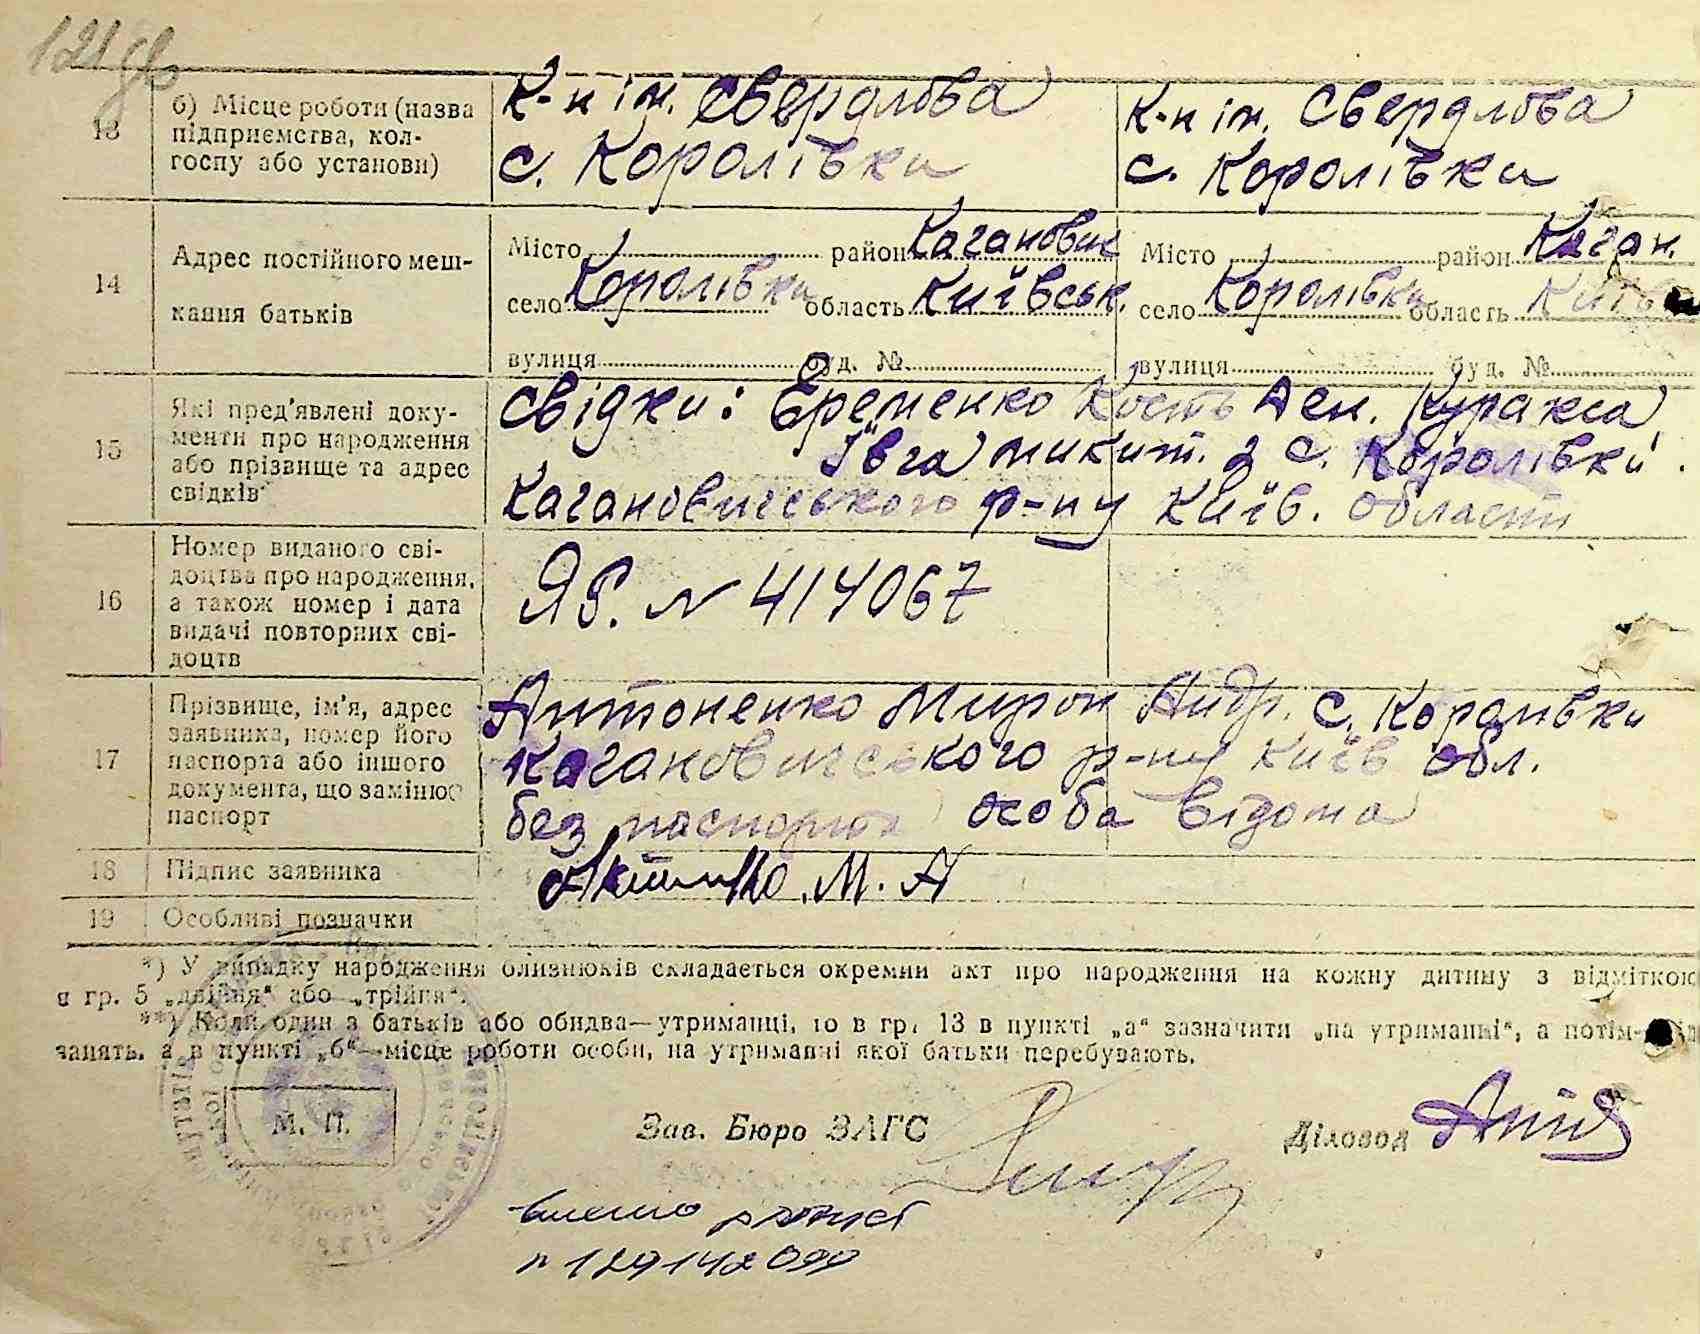 121
13 б) Місце роботи (назва підприємства, колгоспу або установи)
К-п ім. Свердлова
с. Королівка
К-п ім. Свердлова
с. Королівка
14 Адрес постійного мешкання батьків
Місто район Кагановик
село Королівка область Київськ.
вулиця буд. №
Місто район Каган.
село Королівка область Київ
вулиця буд. №
15 Які пред'явлені документи про народження або прізвище та адрес свідків
Свідки: Еременко Кость Сем. Куракса
Івга микит. з с. Королівки.
Кагановичського р-ну Київ. області
16 Номер виданого свідоцтва про народження, а також номер і дата видачі повторних свідоцтв
ЯБ. N 414067
17 Прізвище, ім'я, адрес заявника, номер його паспорта або іншого документа, що замінює паспорт
Антоненко Мирон Андр. с. Королівки
Кагановичського р-ну Київ обл.
без паспорта особа відома
18 Підпис заявника
М. А
19 Особливі позначки
*) У випадку народження близнюків складається окремий акт про народження на кожну дитину з відміткою
в гр. 5 „двійня“ або „трійня“.
**) Коли один з батьків або обидва—утриманці, то в гр. 13 в пункті „а“ зазначити „на утриманні“, а потім—
занять, а в пункті „б“—місце роботи особи, на утриманні якої батьки перебувають.
М. П.
Зав. Бюро ЗАГС
Діловод